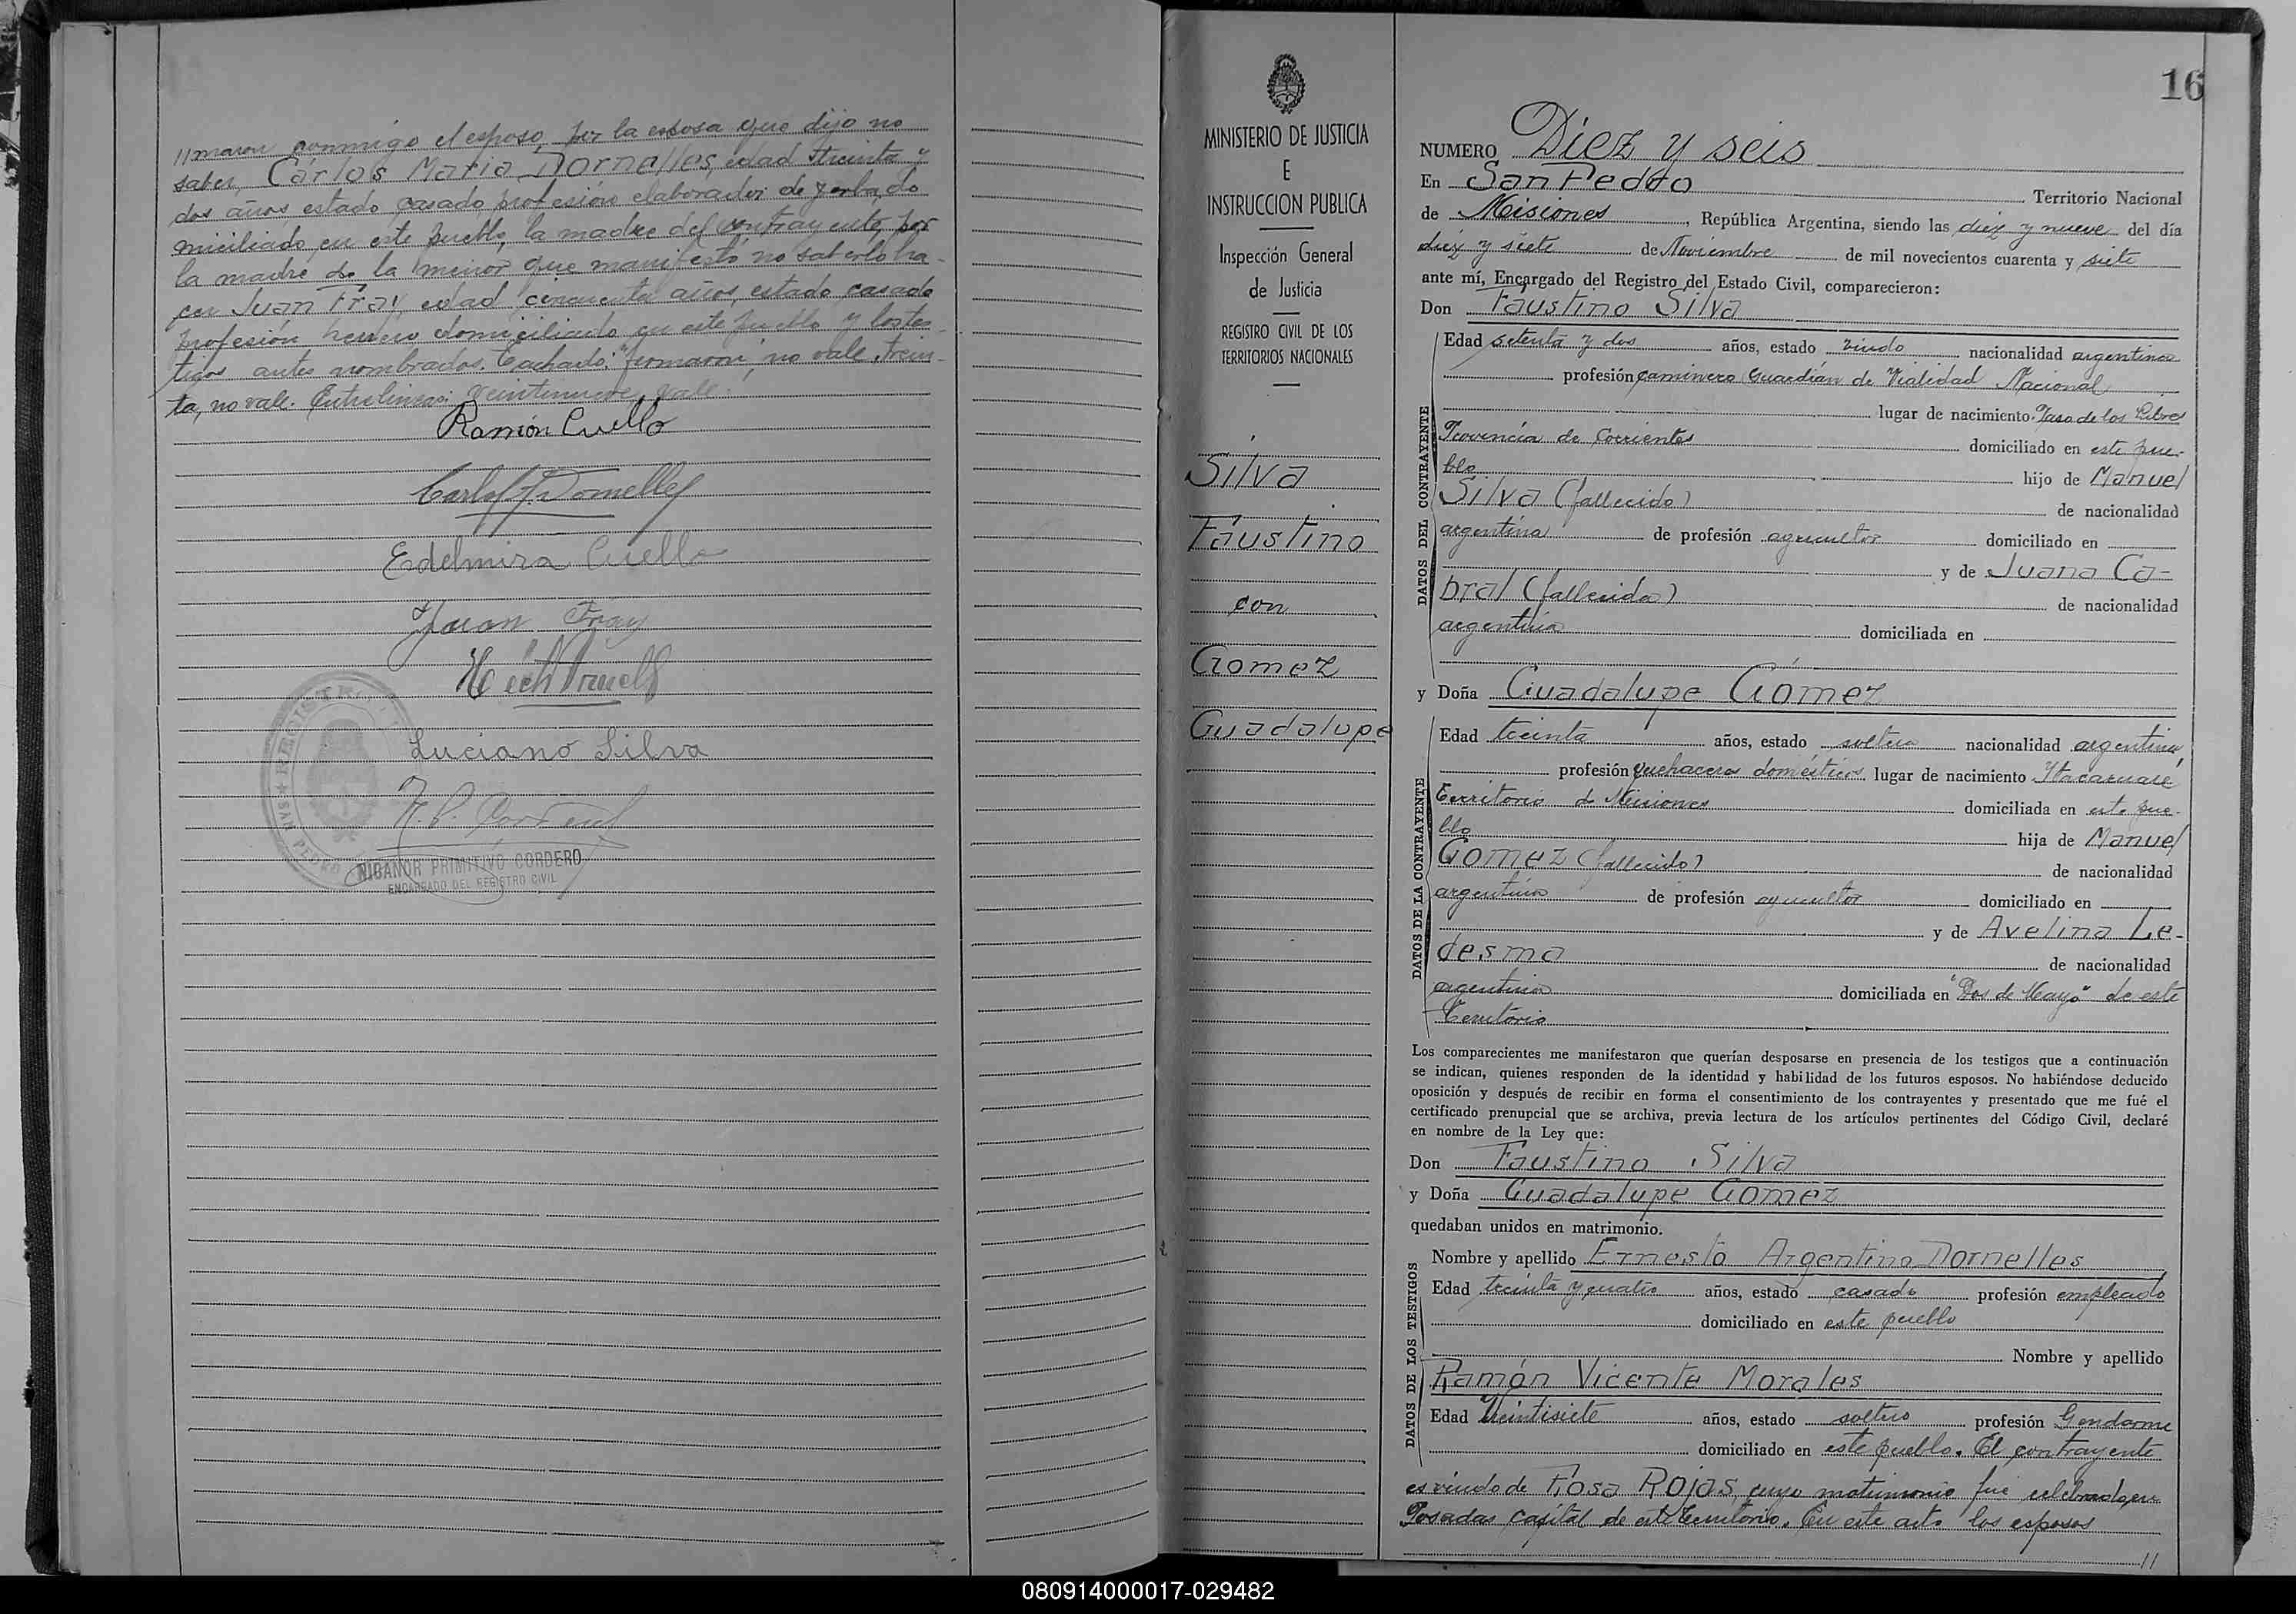 //maron conmigo el esposo, por la esposa que dijo no
saber, Cárlos Maria Dornelles, edad treinta y
dos años estado casado profesión elaborador de yerba, do
miciliado en este pueblo, la madre del contrayente, por
la madre de la menor que manifestó no saberlo ha-
cer Juan Fray, edad cincuenta años, estado casado
profesión herrero domiciliado en este pueblo y los tes-
tigos antes nombrados. Tachado: "firmaron, no vale, trein-
ta, no vale. Entrelineas: veintinueve, vale.
Ramón Cuello
Carlos M Dornelles
Edelmira Cuello
Juan Fray
Luciano Silva
SAN PEDRO
NICANOR PRIMITIVO CORDERO
ENCARGADO DEL REGISTRO CIVIL
MINISTERIO DE JUSTICIA
E
INSTRUCCION PUBLICA
Inspección General
de Justicia
REGISTRO CIVIL DE LOS
TERRITORIOS NACIONALES
Silva
Faustino
con
Gomez
Guadalupe
16
NUMERO Diez y seis
En San Pedro Territorio Nacional
de Misiones, República Argentina, siendo las diez y nueve del día
diez y siete de Noviembre de mil novecientos cuarenta y siete
ante mí, Encargado del Registro del Estado Civil, comparecieron:
Don Faustino Silva
DATOS DEL CONTRAYENTE
Edad setenta y dos años, estado viudo nacionalidad argentina
profesión caminero Guardián de Vialidad Nacional
lugar de nacimiento Paso de los Libres
Provincia de Corrientes domiciliado en este pue-
blo hijo de Manuel
Silva (fallecido) de nacionalidad
argentina de profesión agricultor domiciliado en
y de Juana Ca-
bral (fallecida) de nacionalidad
argentina domiciliada en
y Doña Guadalupe Gómez
DATOS DE LA CONTRAYENTE
Edad treinta años, estado soltera nacionalidad argentina,
profesión quehaceres domésticos lugar de nacimiento Itacaruaré
Territorio de Misiones domiciliada en este pue-
blo hija de Manuel
Gomez (fallecido) de nacionalidad
argentina de profesión agricultor domiciliado en
y de Avelina Le-
desma de nacionalidad
argentina domiciliada en "Dos de Mayo" de este
Territorio
Los comparecientes me manifestaron que querían desposarse en presencia de los testigos que a continuación
se indican, quienes responden de la identidad y habilidad de los futuros esposos. No habiéndose deducido
oposición y después de recibir en forma el consentimiento de los contrayentes y presentado que me fué el
certificado prenupcial que se archiva, previa lectura de los artículos pertinentes del Código Civil, declaré
en nombre de la Ley que:
Don Faustino Silva
y Doña Guadalupe Gomez
quedaban unidos en matrimonio.
DATOS DE LOS TESTIGOS
Nombre y apellido Ernesto Argentino Dornelles
Edad treinta y cuatro años, estado casado profesión empleado
domiciliado en este pueblo
Nombre y apellido
Ramón Vicente Morales
Edad Veintisiete años, estado soltero profesión Gendarme
domiciliado en este pueblo. El contrayente
es viudo de Rosa Rojas, cuyo matrimonio fue celebrado en
Posadas capital de este Territorio. En este acto los esposos
//
080914000017-029482